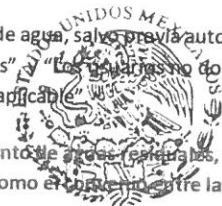 UNIDOS MEX
de agua, salvo previa auto
s" y "Los usuarios no do
aplicable"
nto de aguas residuales,
omo el convenio entre la